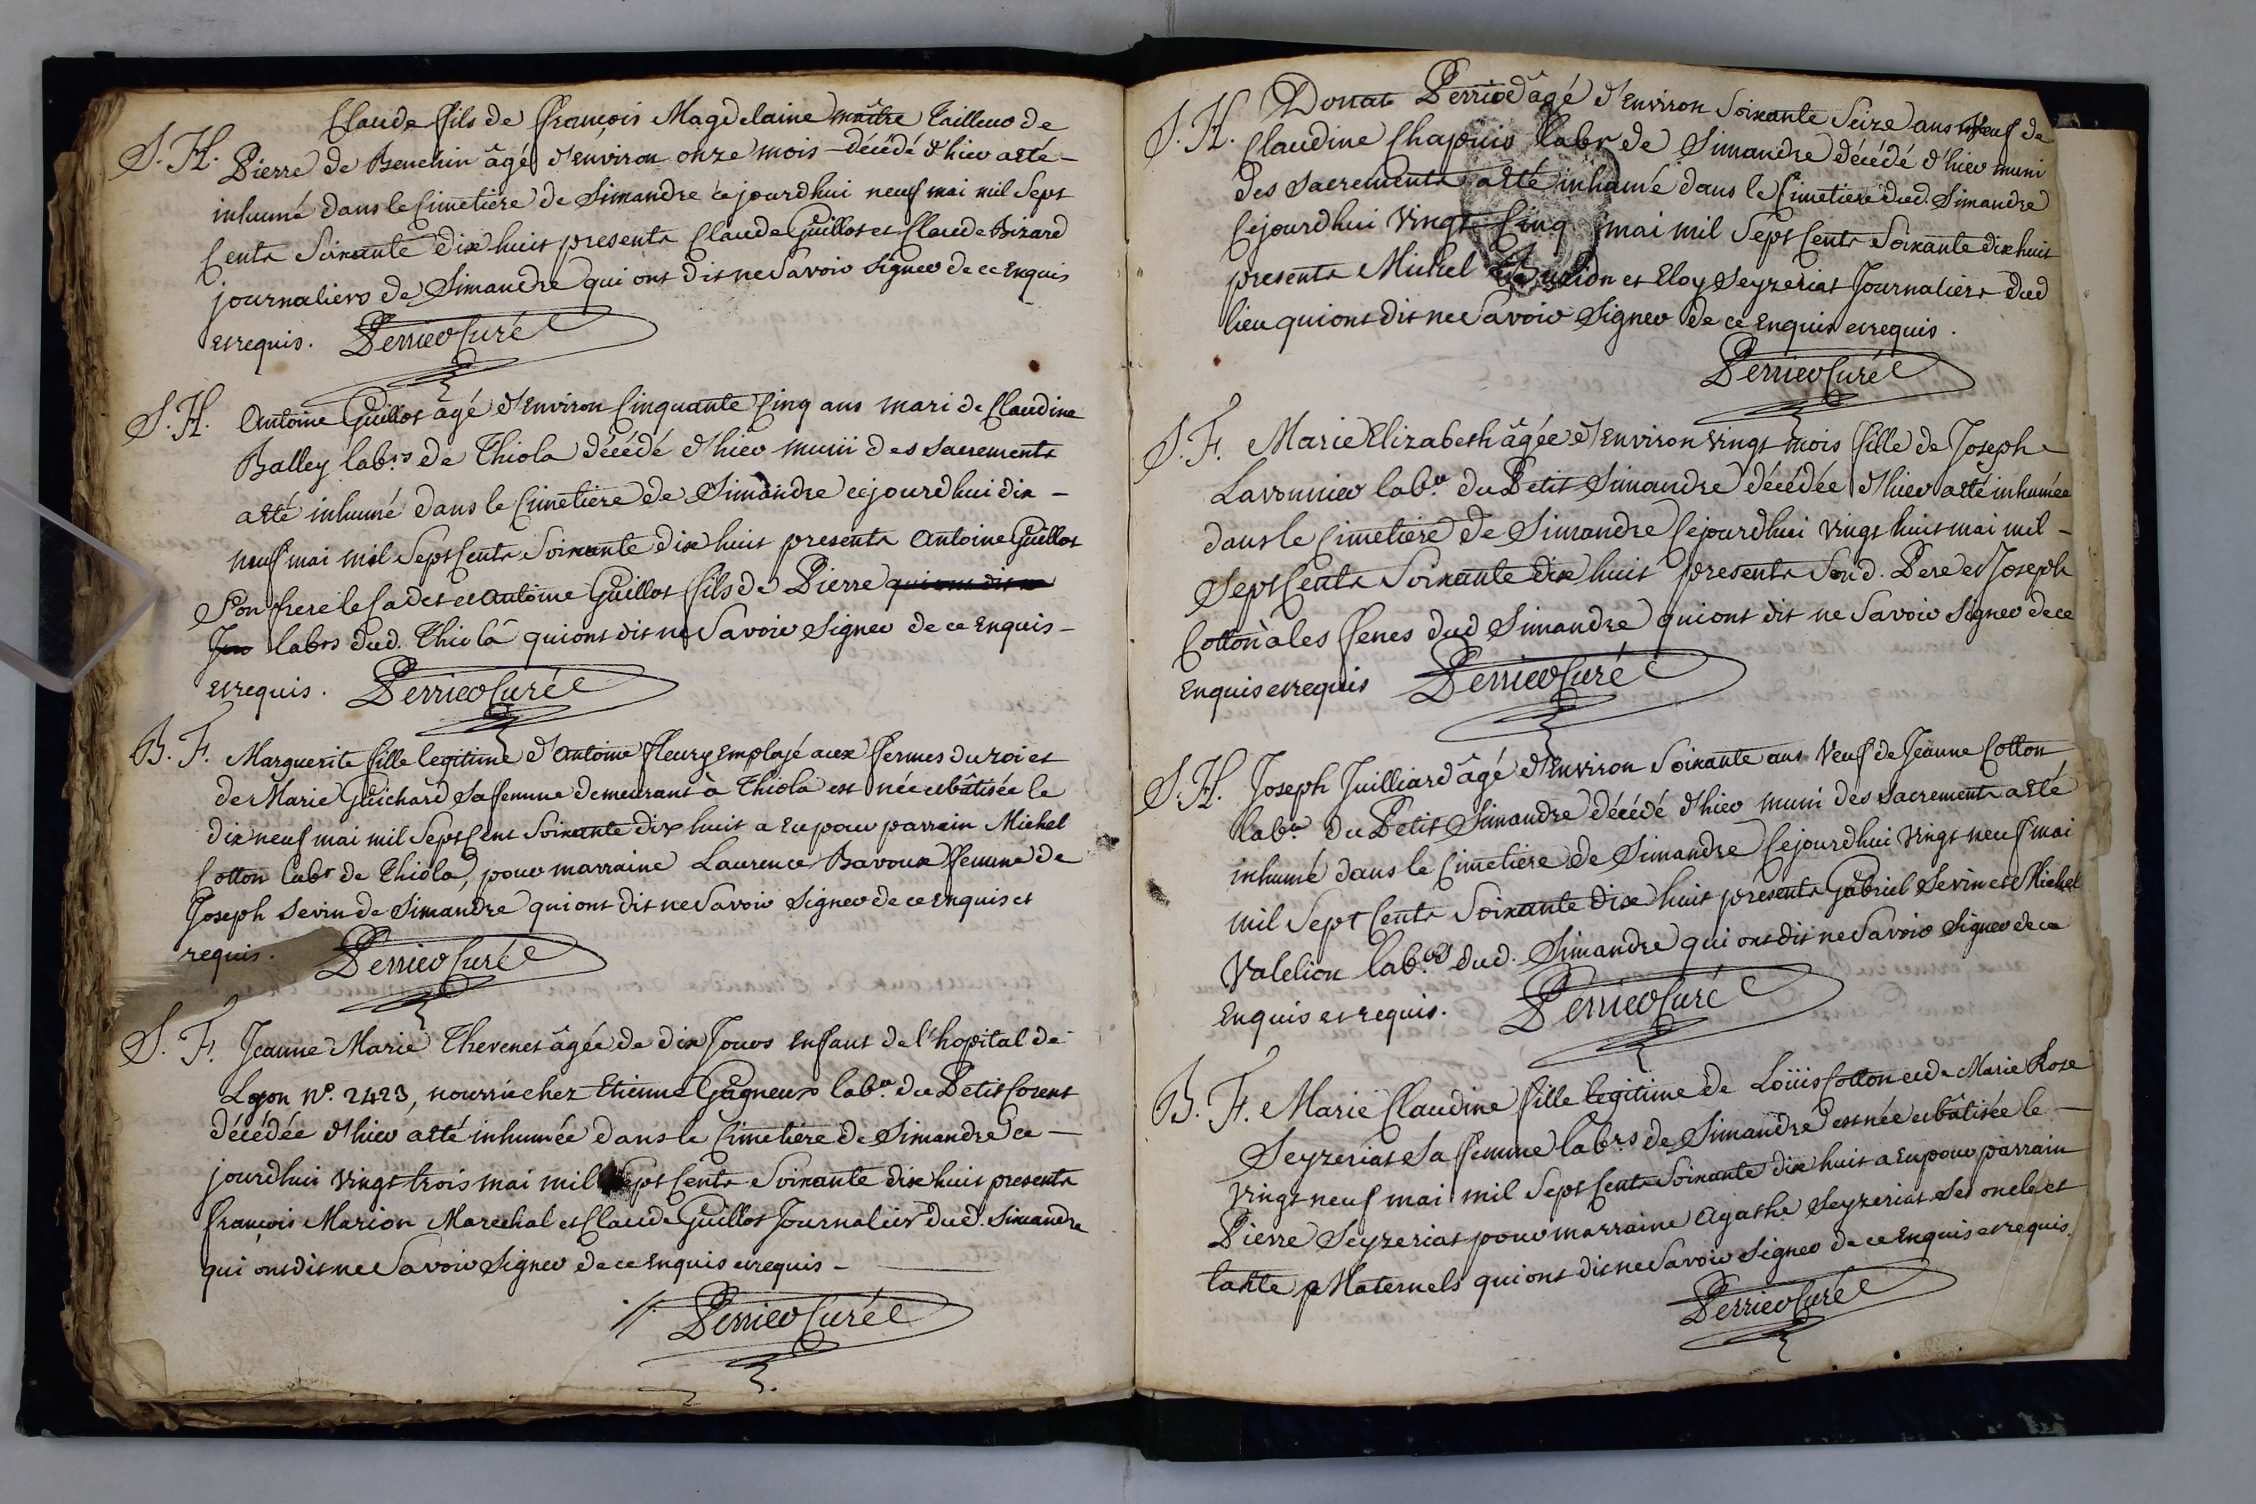 Claude fils de françois Magdelaine maître Tailleur de
S. H. Pierre de Benchin âgé d'environ onze mois - décédé d'hier a eté -
inhumé dans le Cimetiere de Simandre ce jourdhui neuf mai mil Sept
Cents Soixante dix huit presents Claude Guillot et Claude Bizard
journaliers de Simandre qui ont dit ne Savoir signer de ce Enquis
et requis. Perrier Curé
S. H. Antoine Guillot âgé d'Environ Cinquante Cinq ans mari de Claudine
Balley lab.rs de Thiola décédé d'hier muni des sacrements
a eté inhumé dans le Cimetiere de Simandre cejourdhui dix -
neuf mai mil Sept Cents Soixante dix huit presents Antoine Guillot
Son frere le Cadet et antoine Guillot fils de Pierre qui ont dit ne
labrs dud. Thiolâ qui ont dit ne Savoir Signer de ce Enquis -
et requis. Perrier Curé
B. F. Marguerite fille legitime d'Antoine fleury Employé aux fermes du roi et
de Marie Guichard Sa femme demeurant à Thiola est née et bâtisée le
dix neuf mai mil Sept Cent Soixante dix huit a Eu pour parrain Michel
Cotton labr de Thiola, pour marraine Laurence Bavoux femme de
Joseph Sevin de Simandre qui ont dit ne Savoir Signer de ce Enquis et
requis. Perrier Curé
S. F. Jeanne Marie Thevenet âgée de dix Jours Enfant de l'hopital de
Lyon N.o 2423, nourrie chez Etienne Gagneux lab.r du Petit Corent
décédée d'hier a eté inhumée dans le Cimetiere de Simandre ce -
jourdhui vingt trois mai mil Sept Cents Soixante dix huit presents
françois Marion Marechal et Claude Guillot Journalier dud. Simandre
qui ont dit ne Savoir Signer de ce Enquis et requis -
Perrier Curé
S. H. Donat Perriod âgé d'Environ Soixante Seize ans veuf de
Claudine Chapuis labr de Simandre décédé d'hier muni
des Sacrements a eté inhumé dans le Cimetiere dud. Simandre
Cejourdhui Vingt Cinq mai mil Sept Cents Soixante dix huit
presents Michel et Eloy Seyzeriat Journaliers dud
lieu qui ont dit ne Savoir Signer de ce Enquis et requis.
Perrier Curé
S. F. Marie Elizabeth âgée d'Environ Vingt mois fille de Joseph
Lavonnier lab.r du Petit Simandre décédée d'hier a eté inhumée
dans le Cimetiere de Simandre Cejourdhui Vingt huit mai mil -
Sept Cents Soixante dix huit presents Sond. Pere et Joseph
Cotton à les fenes dud Simandre qui ont dit ne Savoir Signer de ce
Enquis et requis Perrier Curé
S. H. Joseph Juilliard âgé d'Environ Soixante ans Veuf de Jeanne Cotton
lab.r du Petit Simandre décédé d'hier muni des Sacrements a eté
inhumé dans le Cimetiere de Simandre Cejourdhui Vingt neuf mai
mil Sept Cents Soixante dix huit presents Gabriel Sevin et Michel
Valelion lab.rs dud. Simandre qui ont dit ne Savoir Signer de ce
Enquis et requis. Perrier Curé
B. F. Marie Claudine fille legitime de Loüis Cotton et de Marie Rose
Seyzeriat Sa femme lab.rs de Simandre est née et bâtisée le -
Vingt neuf mai mil Sept Cents Soixante dix huit a Eu pour parrain
Pierre Seyzeriat pour marraine Agathe Seyzeriat Ses oncle et
tante Maternels qui ont dit ne Savoir Signer de ce Enquis et requis.
Perrier Curé